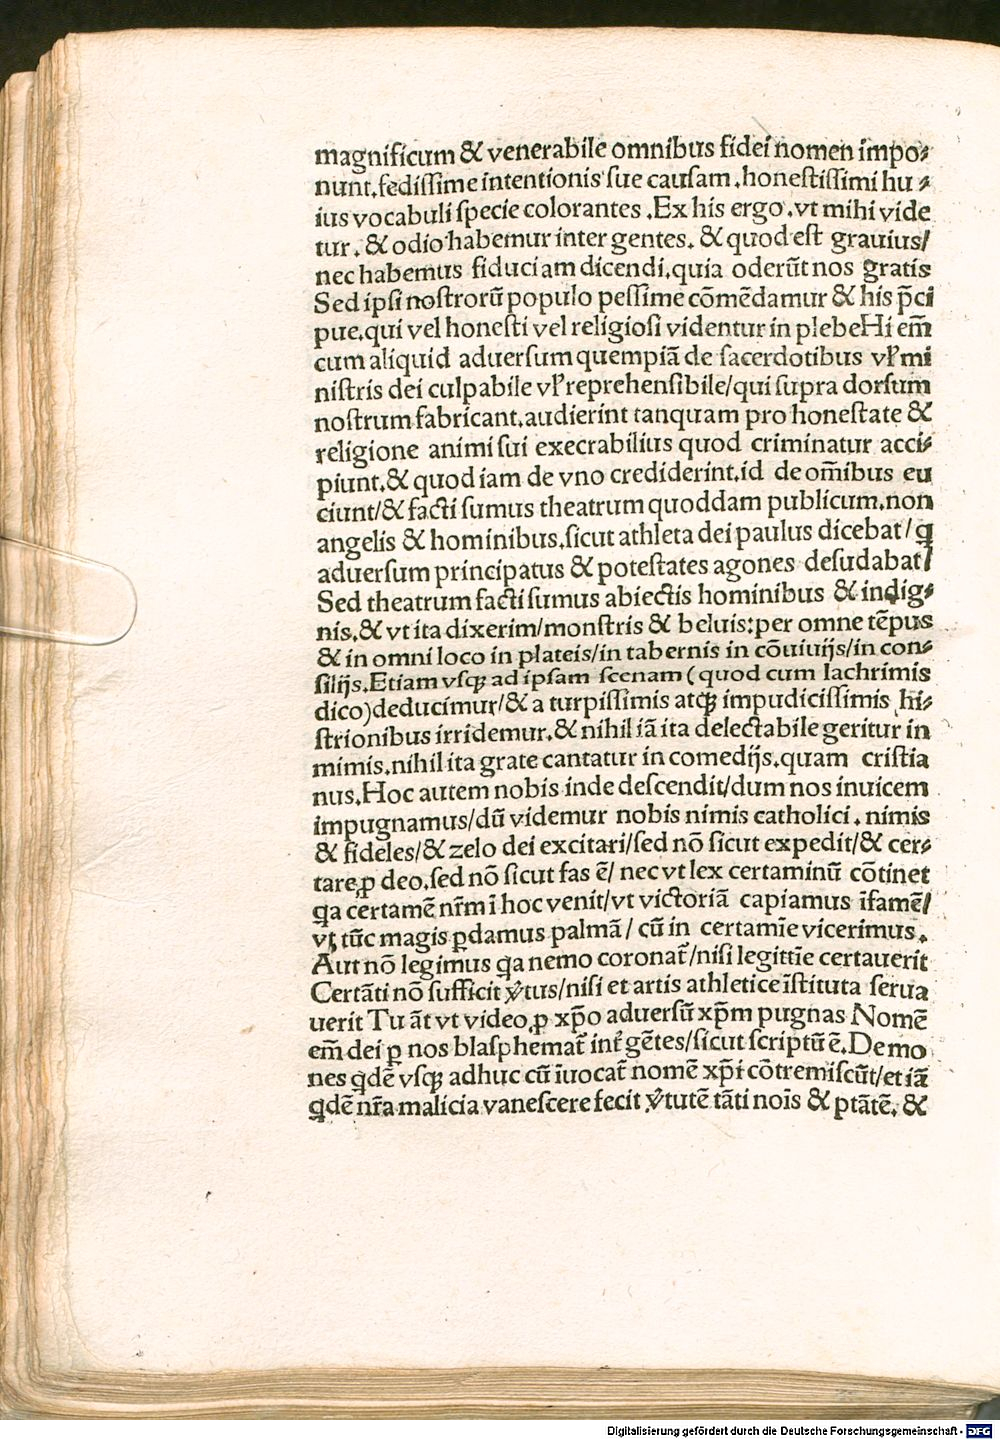 magnificum & venerabile omnibus fidei nomen impo⸗
nunt.fedissime intentionis sue causam .honestissimi hu⸗
ius vocabuli specie colorantes .Ex his ergo .vt mihi vide
tur . & odio habemur inter gentes. & quod est grauius/
nec habemus fiduciam dicendi.quia oderūt nos gratis
Sed ipsi nostrorū populo pessime cōmēdamur & his p̄ci
pue.qui vel honesti vel religiosi videntur in plebeHi em̄
cum aliquid aduersum quempiā de sacerdotibus vl̛ mi
nistris dei culpabile vl̛ reprehensibile/qui supra dorsum
nostrum fabricant.audierint tanquam pro honestate &
religione animi sui execrabilius quod criminatur acci⸗
piunt.& quod iam de vno crediderint.id de om̄ibus eu
ciunt/& facti sumus theatrum quoddam publicum.non
angelis & hominibus.sicut athleta dei paulus dicebat/ꝗ
aduersum principatus & potestates agones desudabat/
Sed theatrum facti sumus abiectis hominibus & indig⸗
nis.& vt ita dixerim/monstris & beluis:per omne tēpus
& in omni loco in plateis/in tabernis in cōuiuijs/in con⸗
silijs.Etiam vsqꝫ ad ipsam scenam (quod cum lachrimis
dico)deducimur/& a turpissimis atqꝫ impudicissimis hi⸗
strionibus irridemur.& nihil iā ita delectabile geritur in
mimis.nihil ita grate cantatur in comedijs.quam cristia
nus.Hoc autem nobis inde descendit/dum nos inuicem
impugnamus/dū videmur nobis nimis catholici . nimis
& fideles/& zelo dei excitari/sed nō sicut expedit/& cer⸗
tare ꝓ deo.sed nō sicut fas ē/ nec vt lex certaminū cōtinet
ꝗa certamē nr̄m ī hoc venit/vt victoriā capiamus īfamē/
vt tūc magis ꝑdamus palmā/ cū in certamīe vicerimus.
Aut nō legimus ꝗa nemo coronat̄/nisi legittīe certauerit
Certāti nō sufficit v̛tus/nisi et artis athletice īstituta serua
uerit Tu āt vt video ꝓ xp̄o aduersū xp̄m pugnas Nomē
em̄ dei ꝓ nos blasphemat̄ int̛ gētes/sicut scriptū ē.Demo
nes ꝗdē vsqꝫ adhuc cū īuocat̄ nomē xp̄i cōtremiscūt/et iā
ꝗdē nr̄a malicia vanescere fecit v̛tutē tāti nois & ptātē. &
Digitalisierung gefördert durch die Deutsche Forschungsgemeinschaft - DFG